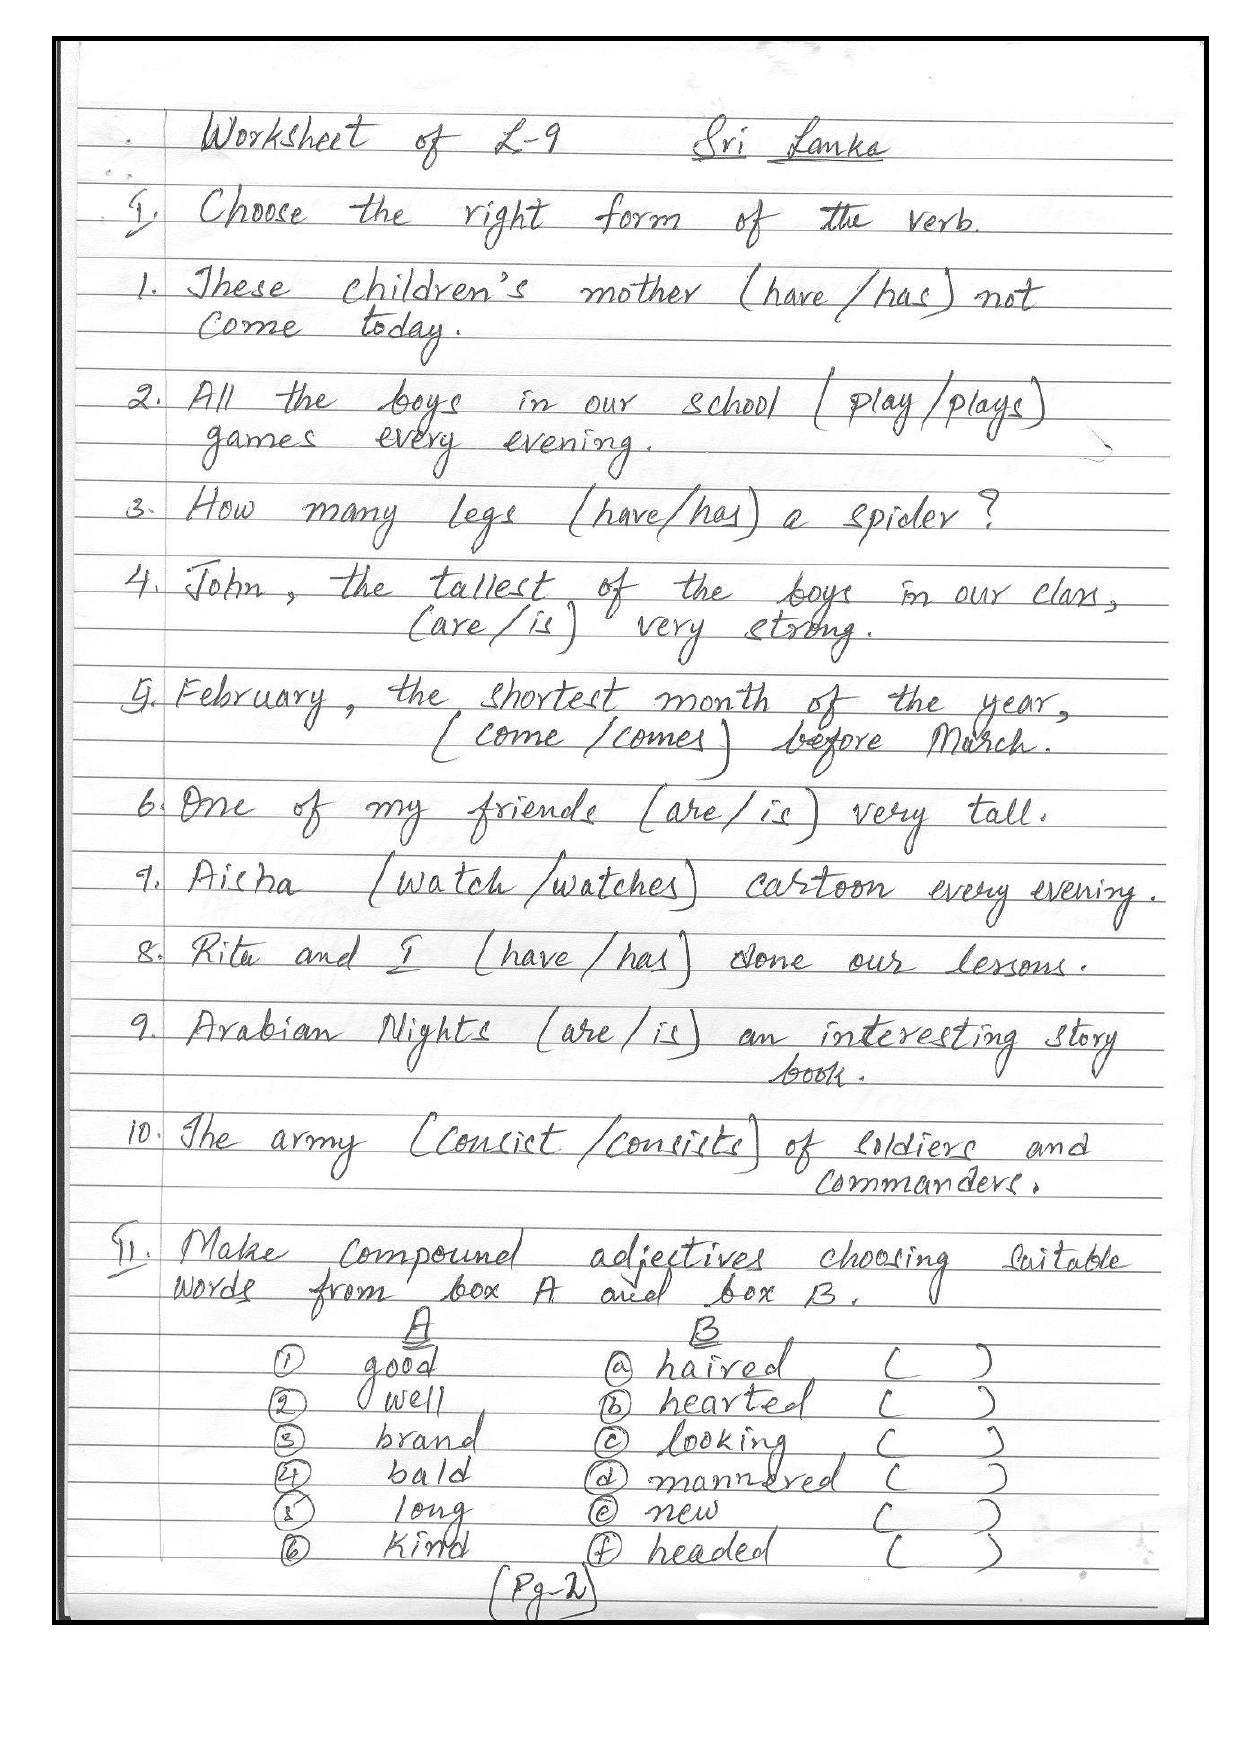 Worksheet of L-9 Sri Lanka
I. Choose the right form of the verb.
1. These children's mother (have/has) not
come today.
2. All the boys in our school (play/plays)
games every evening.
3. How many legs (have/has) a spider?
4. John, the tallest of the boys in our class,
(are/is) very strong.
5. February, the shortest month of the year,
(come/comes) before March.
6. One of my friends (are/is) very tall.
7. Aisha (watch/watches) cartoon every evening.
8. Rita and I (have/has) done our lessons.
9. Arabian Nights (are/is) an interesting story
book.
10. The army (consist/consists) of soldiers and
commanders.
II. Make compound adjectives choosing suitable
words from box A and box B.
A B
1 good a haired ( )
2 well b hearted ( )
3 brand c looking ( )
4 bald d mannered ( )
5 long e new ( )
6 kind f headed ( )
(Pg-2)